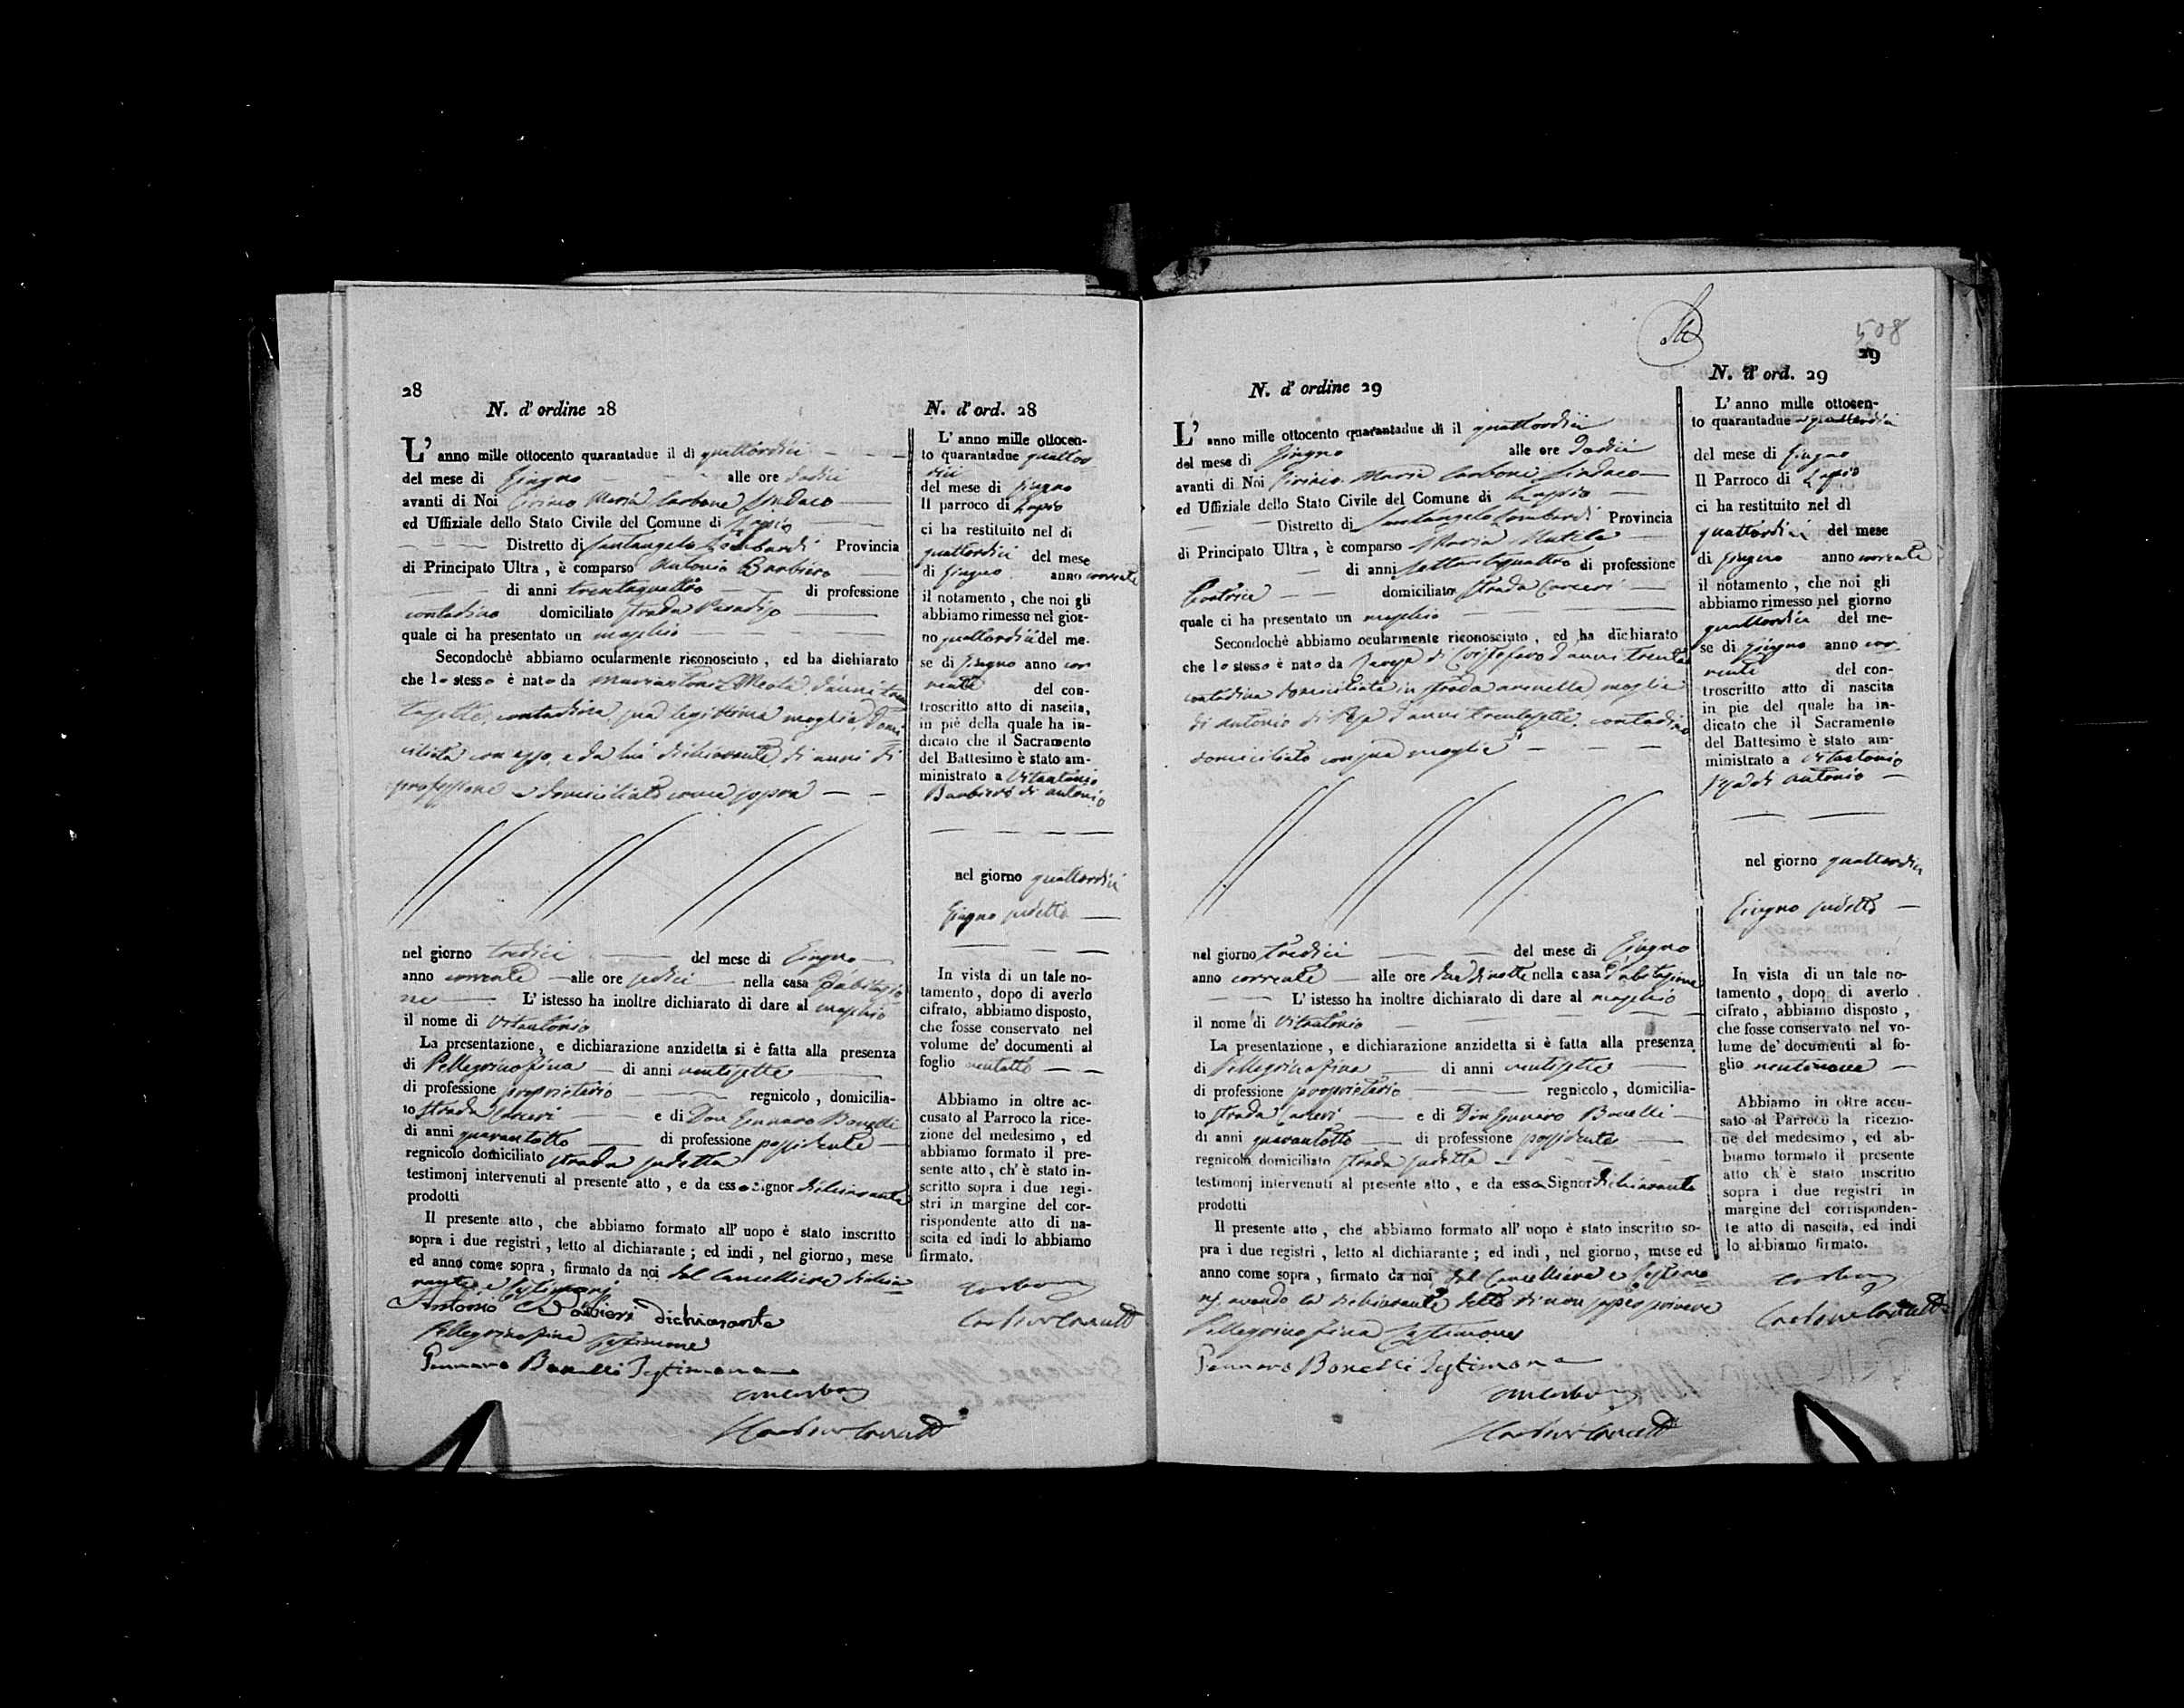 28
N. d' ordine 28
L' anno mille ottocento quarantadue il di quattordici
del mese di Giugno alle ore dodici
avanti di Noi Ciriaco Maria Carbone Sindaco
ed Uffiziale dello Stato Civile del Comune di Lapio
Distretto di Santangelo Lombardi Provincia
di Principato Ultra, è comparso Antonio Barbiero
di anni trentaquattro di professione
contadino domiciliato strada Paradiso
quale ci ha presentato un maschio
Secondochè abbiamo ocularmente riconosciuto, ed ha dichiarato
che lo stesso è nato da Mariantonia Meola d'anni tren
tasette, contadina sua legittima moglie, domi
ciliata con esso, e da lui dichiarante di anni di
professione e domiciliato come sopra
nel giorno tredici del mese di Giugno
anno corrente alle ore sedici nella casa d'abitazio
ne L' istesso ha inoltre dichiarato di dare al maschio
il nome di Vitantonio
La presentazione, e dichiarazione anzidetta si è fatta alla presenza
di Pellegrino Fina di anni ventisette
di professione proprietario regnicolo, domicilia-
to strada Carceri e di Don Gennaro Bonelli
di anni quarantotto di professione possidente
regnicolo domiciliato strada sudetta
testimonj intervenuti al presente atto, e da esso Signor dichiarante
prodotti
Il presente atto, che abbiamo formato all' uopo è stato inscritto
sopra i due registri, letto al dichiarante; ed indi, nel giorno, mese
ed anno come sopra, firmato da noi dal Cancelliere dichia
rante e testimonj
Antonio Barbieri dichiarante
Pellegrino Fina testimone
Gennaro Bonelli Testimone
N. d' ord. 28
L' anno mille ottocen-
to quarantadue quattor
dici
del mese di Giugno
Il parroco di Lapio
ci ha restituito nel di
quattordici del mese
di Giugno anno corrente
il notamento, che noi gli
abbiamo rimesso nel gior-
no quattordici del me-
se di Giugno anno cor
rente del con-
troscritto atto di nascita,
in piè della quale ha in-
dicato che il Sacramento
del Battesimo è stato am-
ministrato a Vitantonio
Barbiero di Antonio
nel giorno quattordici
Giugno sudetto
In vista di un tale no-
tamento, dopo di averlo
cifrato, abbiamo disposto,
che fosse conservato nel
volume de' documenti al
foglio ventotto
Abbiamo in oltre ac-
cusato al Parroco la rice-
zione del medesimo, ed
abbiamo formato il pre-
sente atto, ch' è stato in-
scritto sopra i due regi-
stri in margine del cor-
rispondente atto di na-
scita ed indi lo abbiamo
firmato.
508
29
N. d' ordine 29
L' anno mille ottocento quarantadue di il quattordici
del mese di Giugno alle ore dodici
avanti di Noi Ciriaco Maria Carbone Sindaco
ed Uffiziale dello Stato Civile del Comune di Lapio
Distretto di Santangelo Lombardi Provincia
di Principato Ultra, è comparso Maria
di anni settantaquattro di professione
domiciliato strada Carceri
quale ci ha presentato un maschio
Secondochè abbiamo ocularmente riconosciuto, ed ha dichiarato
che lo stesso è nato da di Cristofaro d'anni trenta
contadina domiciliata in strada moglie
di Antonio di d'anni trentasette contadino
domiciliato con sua moglie
nel giorno tredici del mese di Giugno
anno corrente alle ore due di notte nella casa d'abitazione
L' istesso ha inoltre dichiarato di dare al maschio
il nome di Vitantonio
La presentazione, e dichiarazione anzidetta si è fatta alla presenza
di Pellegrino Fina di anni ventisette
di professione proprietario regnicolo, domicilia-
to strada Carceri e di Don Gennaro Bonelli
di anni quarantotto di professione possidente
regnicolo domiciliato strada sudetta
testimonj intervenuti al presente atto, e da essa Signor dichiarante
prodotti
Il presente atto, che abbiamo formato all' uopo è stato inscritto so-
pra i due registri, letto al dichiarante; ed indi, nel giorno, mese ed
anno come sopra, firmato da noi, dal Cancelliere e testimo
nj, avendo la dichiarante detto di non saper scrivere
Pellegrino Fina testimone
Gennaro Bonelli Testimone
N. d' ord. 29
L' anno mille ottocen-
to quarantadue quattordici
del mese di Giugno
Il Parroco di Lapio
ci ha restituito nel dì
quattordici del mese
di Giugno anno corrente
il notamento, che noi gli
abbiamo rimesso nel giorno
quattordici del me-
se di Giugno anno cor
rente del con-
troscritto atto di nascita
in pie del quale ha in-
dicato che il Sacramento
del Battesimo è stato am-
ministrato a Vitantonio
di Antonio
nel giorno quattordici
Giugno sudetto
In vista di un tale no-
tamento, dopo di averlo
cifrato, abbiamo disposto,
che fosse conservato nel vo-
lume de' documenti al fo-
glio ventinove
Abbiamo in oltre accu-
sato al Parroco la ricezio-
ne del medesimo, ed ab-
biamo formato il presente
atto ch' è stato inscritto
sopra i due registri in
margine del corrisponden-
te atto di nascita, ed indi
lo abbiamo firmato.